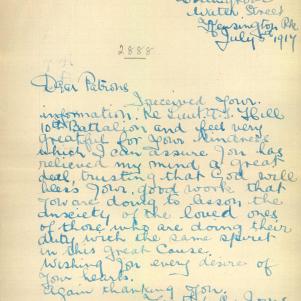 Water Street
Kensington Pk
July 5th 1917
2888
Dear Patrons
I received Your
information, Re Lieut
10th Battalion and feel very
greatful for Your kindness
which I can assure You has
relieved my mind a great
deal, trusting that God will
bless Your good work that
You are doing to lesson the
anxiety of the loved ones
of those who are doing their
duty with the same spirit
in this Great Cause.
Wishing You every desire of
Your hearts.
Again thanking You.